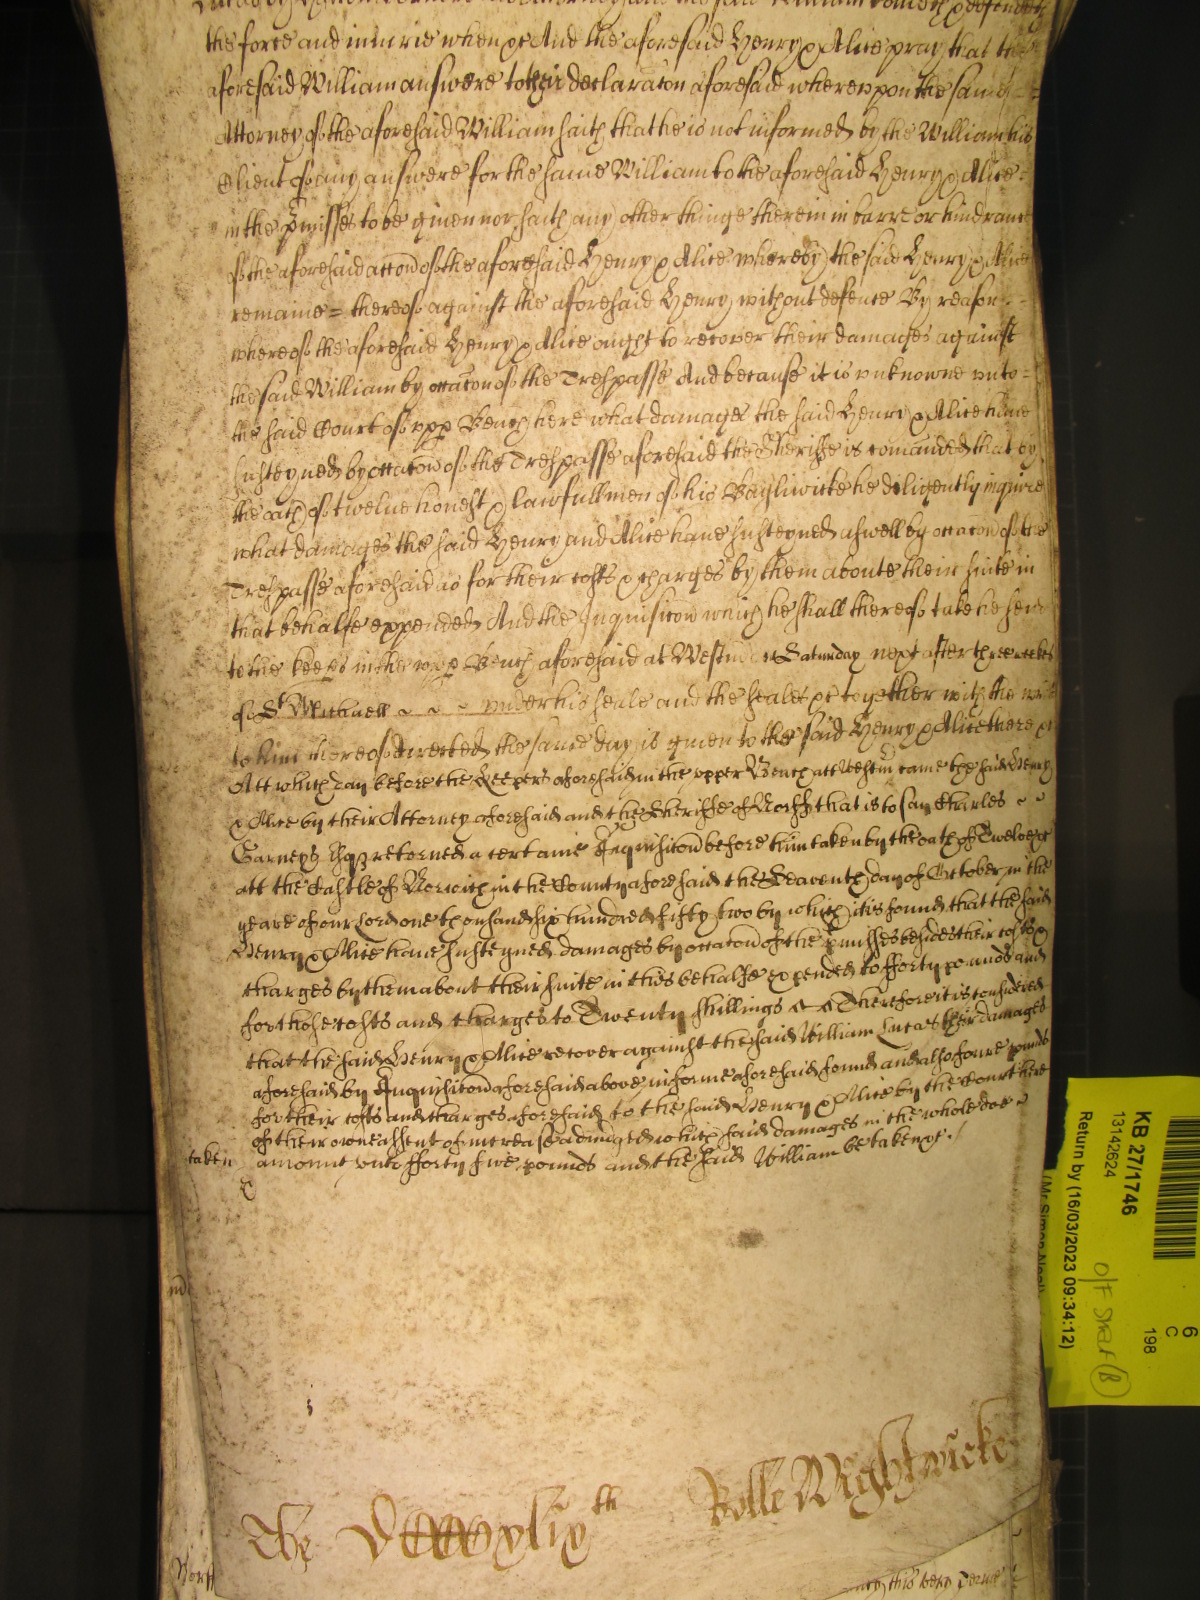 the force and iniurie when &c And the aforesaid Henry & Alice pray that the
aforesaid William answere to their declaracon aforesaid whereuppon the same
Attorney of the aforesaid William saith that he is not informed by the William his
Client of any answere for the same William to the aforesaid Henry & Alice
in the p̱misses to be giuen nor saith any other thinge therein in barre or hindrance
of the aforesaid accon of the aforesaid Henry & Alice whereby the said Henry & Alice
remaine = thereof against the aforesaid Henry without defence By reason
whereof the aforesaid Henry & Alice ought to recover their damages against
the said William by occacon of the Trespasse And because it is unknowne unto =
the said Court of upp Bench here what damages the said Henry & Alice haue
susteyned by occacon of the Trespasse aforesaid the Sheriffe is comanded that by
the oath of twelue honest & lawfull men of his Bayliwicke he deligently inquire
what damages the said Henry and Alice haue susteyned aswell by occacon of the
Trespasse aforesaid as for their costs & charges by them aboute their suite in
that behalfe expended And the Inquisicon which he shall thereof take he send
to the keeps in the upp Bench aforesaid at Westm on Saturday next after three weekes
of St Michaell ~ ~ ~ under his seale and the seales &c together with the writt
to him thereof directed the same day is giuen to the said Henry & Alice there &c
Att which day before the Keepers aforesaid in the upper Bench att Westm came the said Henry
& Alice by their Attorney aforesaid and the Sheriffe of Norff that is to say Charles ~ ~
Garneys Esqz returned a certaine Inquisicon before him taken by the oath of Twelve &c
att the Castle of Norwich in the County aforesaid the Seaventh day of October in the
yeare of our Lord one thousand six hundred fifty two by which it is found that the said
Henry & Alice haue susteyned damages by occacon of the p̱misses besides their costs &
charges by them about their suite in this behalfe expended to fforty pounds and
for those costs and charges to Twenty shillings Therefore it is considered
that the said Henry & Alice recover against the said William Lucas their damages
aforesaid by Inquisicon aforesaid above in forme aforesaid found and also foure pounds
for their costs and charges aforesaid to the said Henry & Alice by the Court here
of their owne assent of increase adiudged which said damages in the whole doe ~
taken amount unto fforty five pounds and the said William be taken &c ./
The xlixth Rolle Wightwicke
Norff
KB 27/1746
13142624
Return by (16/03/2023 09:34:12)
O/F Shelf (B)
6
C
198